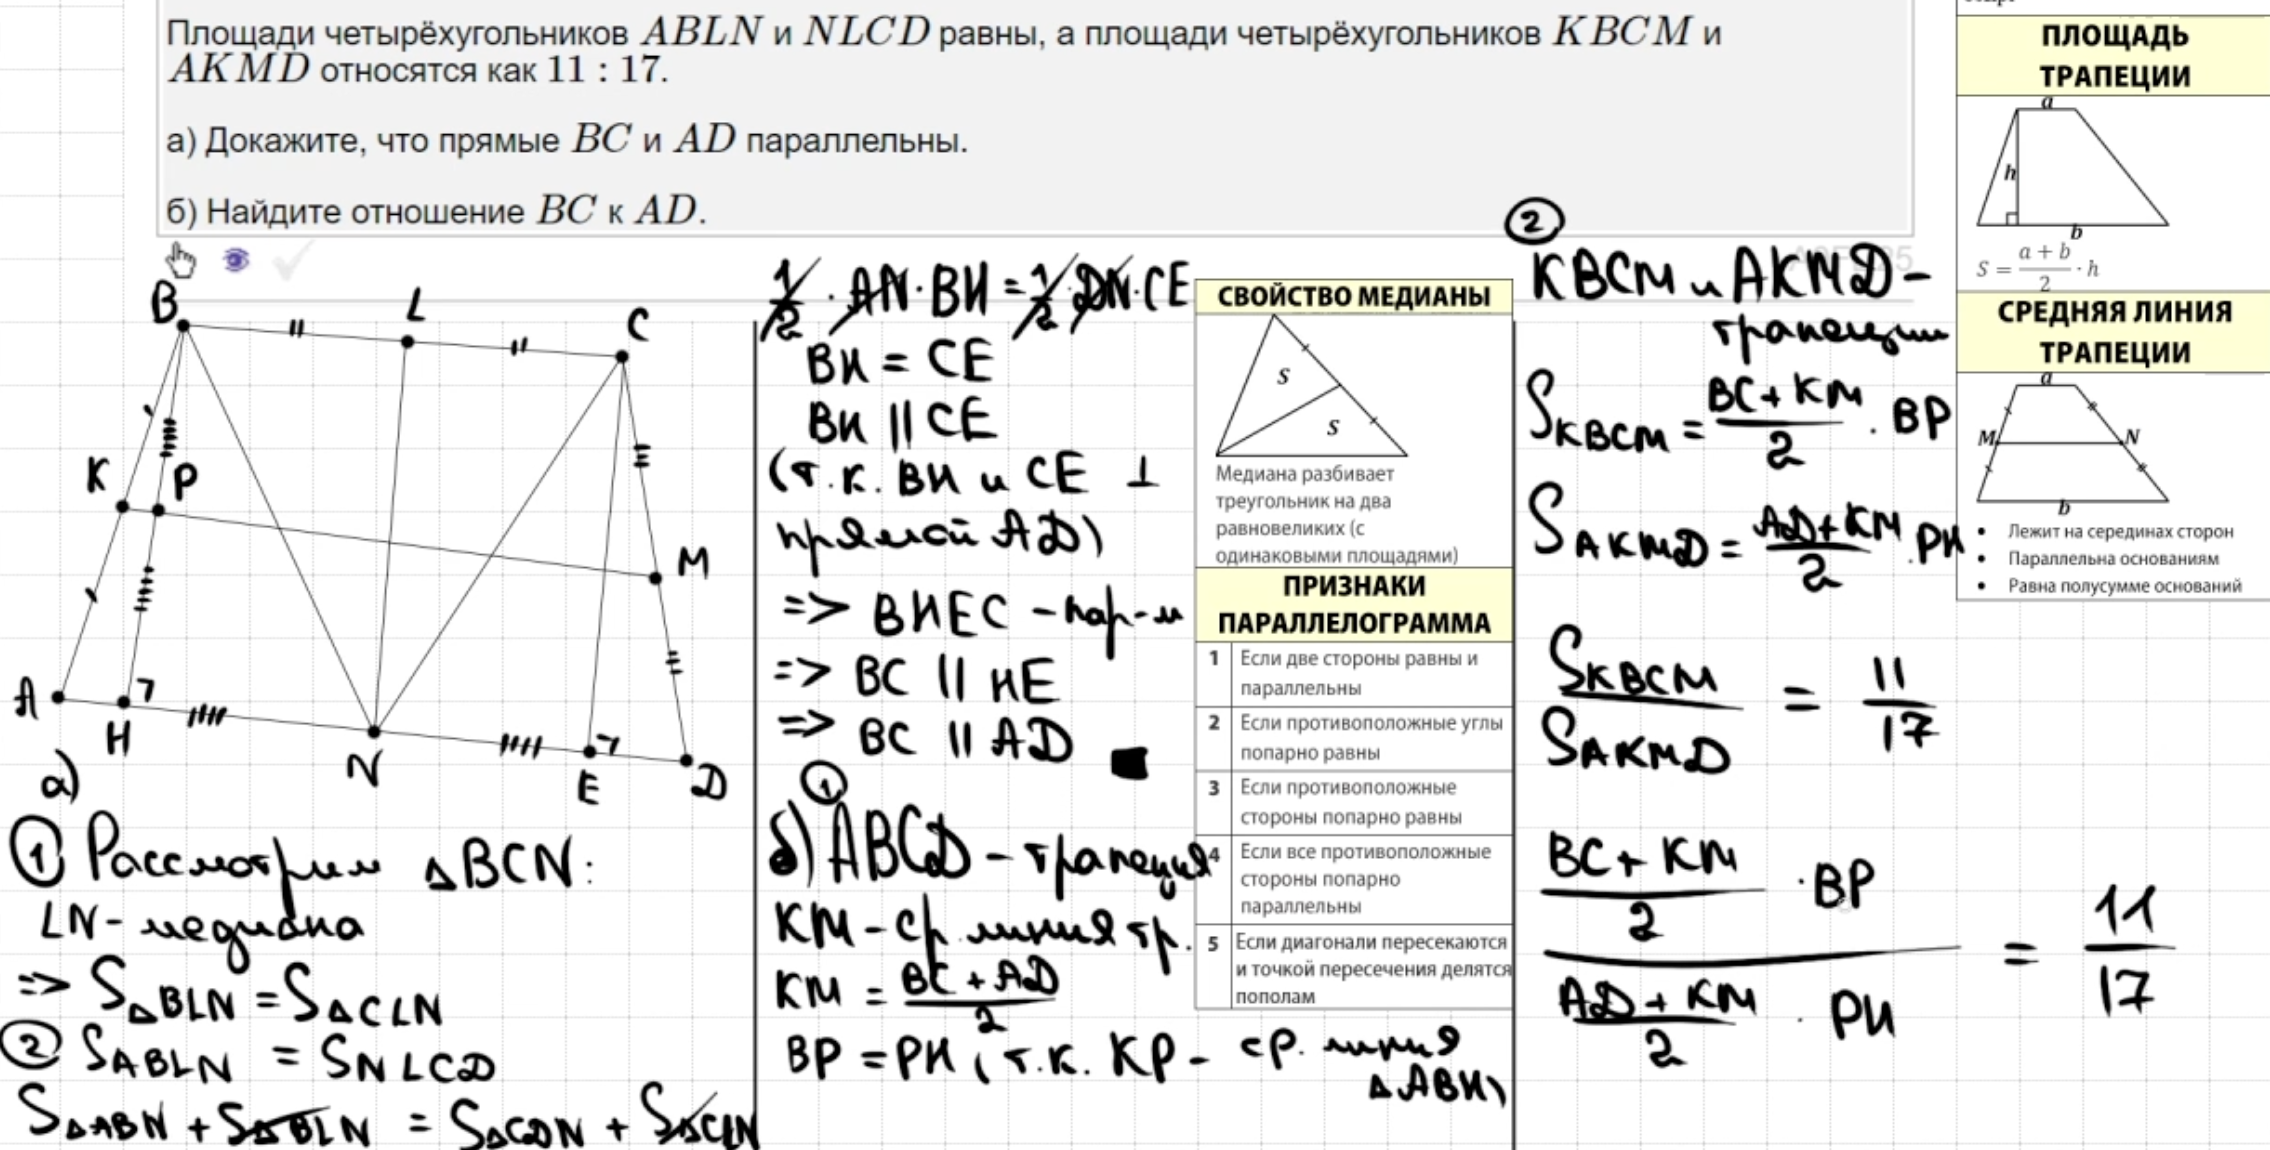 Площади четырёхугольников ABLN и NLCD равны, а площади четырёхугольников KBCM и
AKMD относятся как 11 : 17.
а) Докажите, что прямые BC и AD параллельны.
б) Найдите отношение BC к AD.
B
L
C
K
P
M
A
H
N
E
D
а)
① Рассмотрим △BCN:
LN - медиана
=> S△BLN = S△CLN
② SABLN = SNLCD
S△ABN + S△BLN = S△CDN + S△CLN
1/2 · AN · BH = 1/2 · DN · CE
BH = CE
BH || CE
(т.к. BH и CE ⊥
прямой AD)
=> BHEC - пар-м
=> BC || HE
=> BC || AD
①
б) ABCD - трапеция
KM - ср. линия тр.
KM = BC + AD / 2
BP = PH (т.к. KP - ср. линия
△ABH)
СВОЙСТВО МЕДИАНЫ
S
S
Медиана разбивает
треугольник на два
равновеликих (с
одинаковыми площадями)
ПРИЗНАКИ
ПАРАЛЛЕЛОГРАММА
1 Если две стороны равны и
параллельны
2 Если противоположные углы
попарно равны
3 Если противоположные
стороны попарно равны
4 Если все противоположные
стороны попарно
параллельны
5 Если диагонали пересекаются
и точкой пересечения делятся
пополам
②
KBCM и AKMD -
трапеции
SKBCM = BC + KM / 2 · BP
SAKMD = AD + KM / 2 · PH
SKBCM / SAKMD = 11 / 17
BC + KM / 2 · BP
AD + KM / 2 · PH
= 11 / 17
ПЛОЩАДЬ
ТРАПЕЦИИ
a
h
b
S = a + b / 2 · h
СРЕДНЯЯ ЛИНИЯ
ТРАПЕЦИИ
a
M
N
b
• Лежит на серединах сторон
• Параллельна основаниям
• Равна полусумме оснований